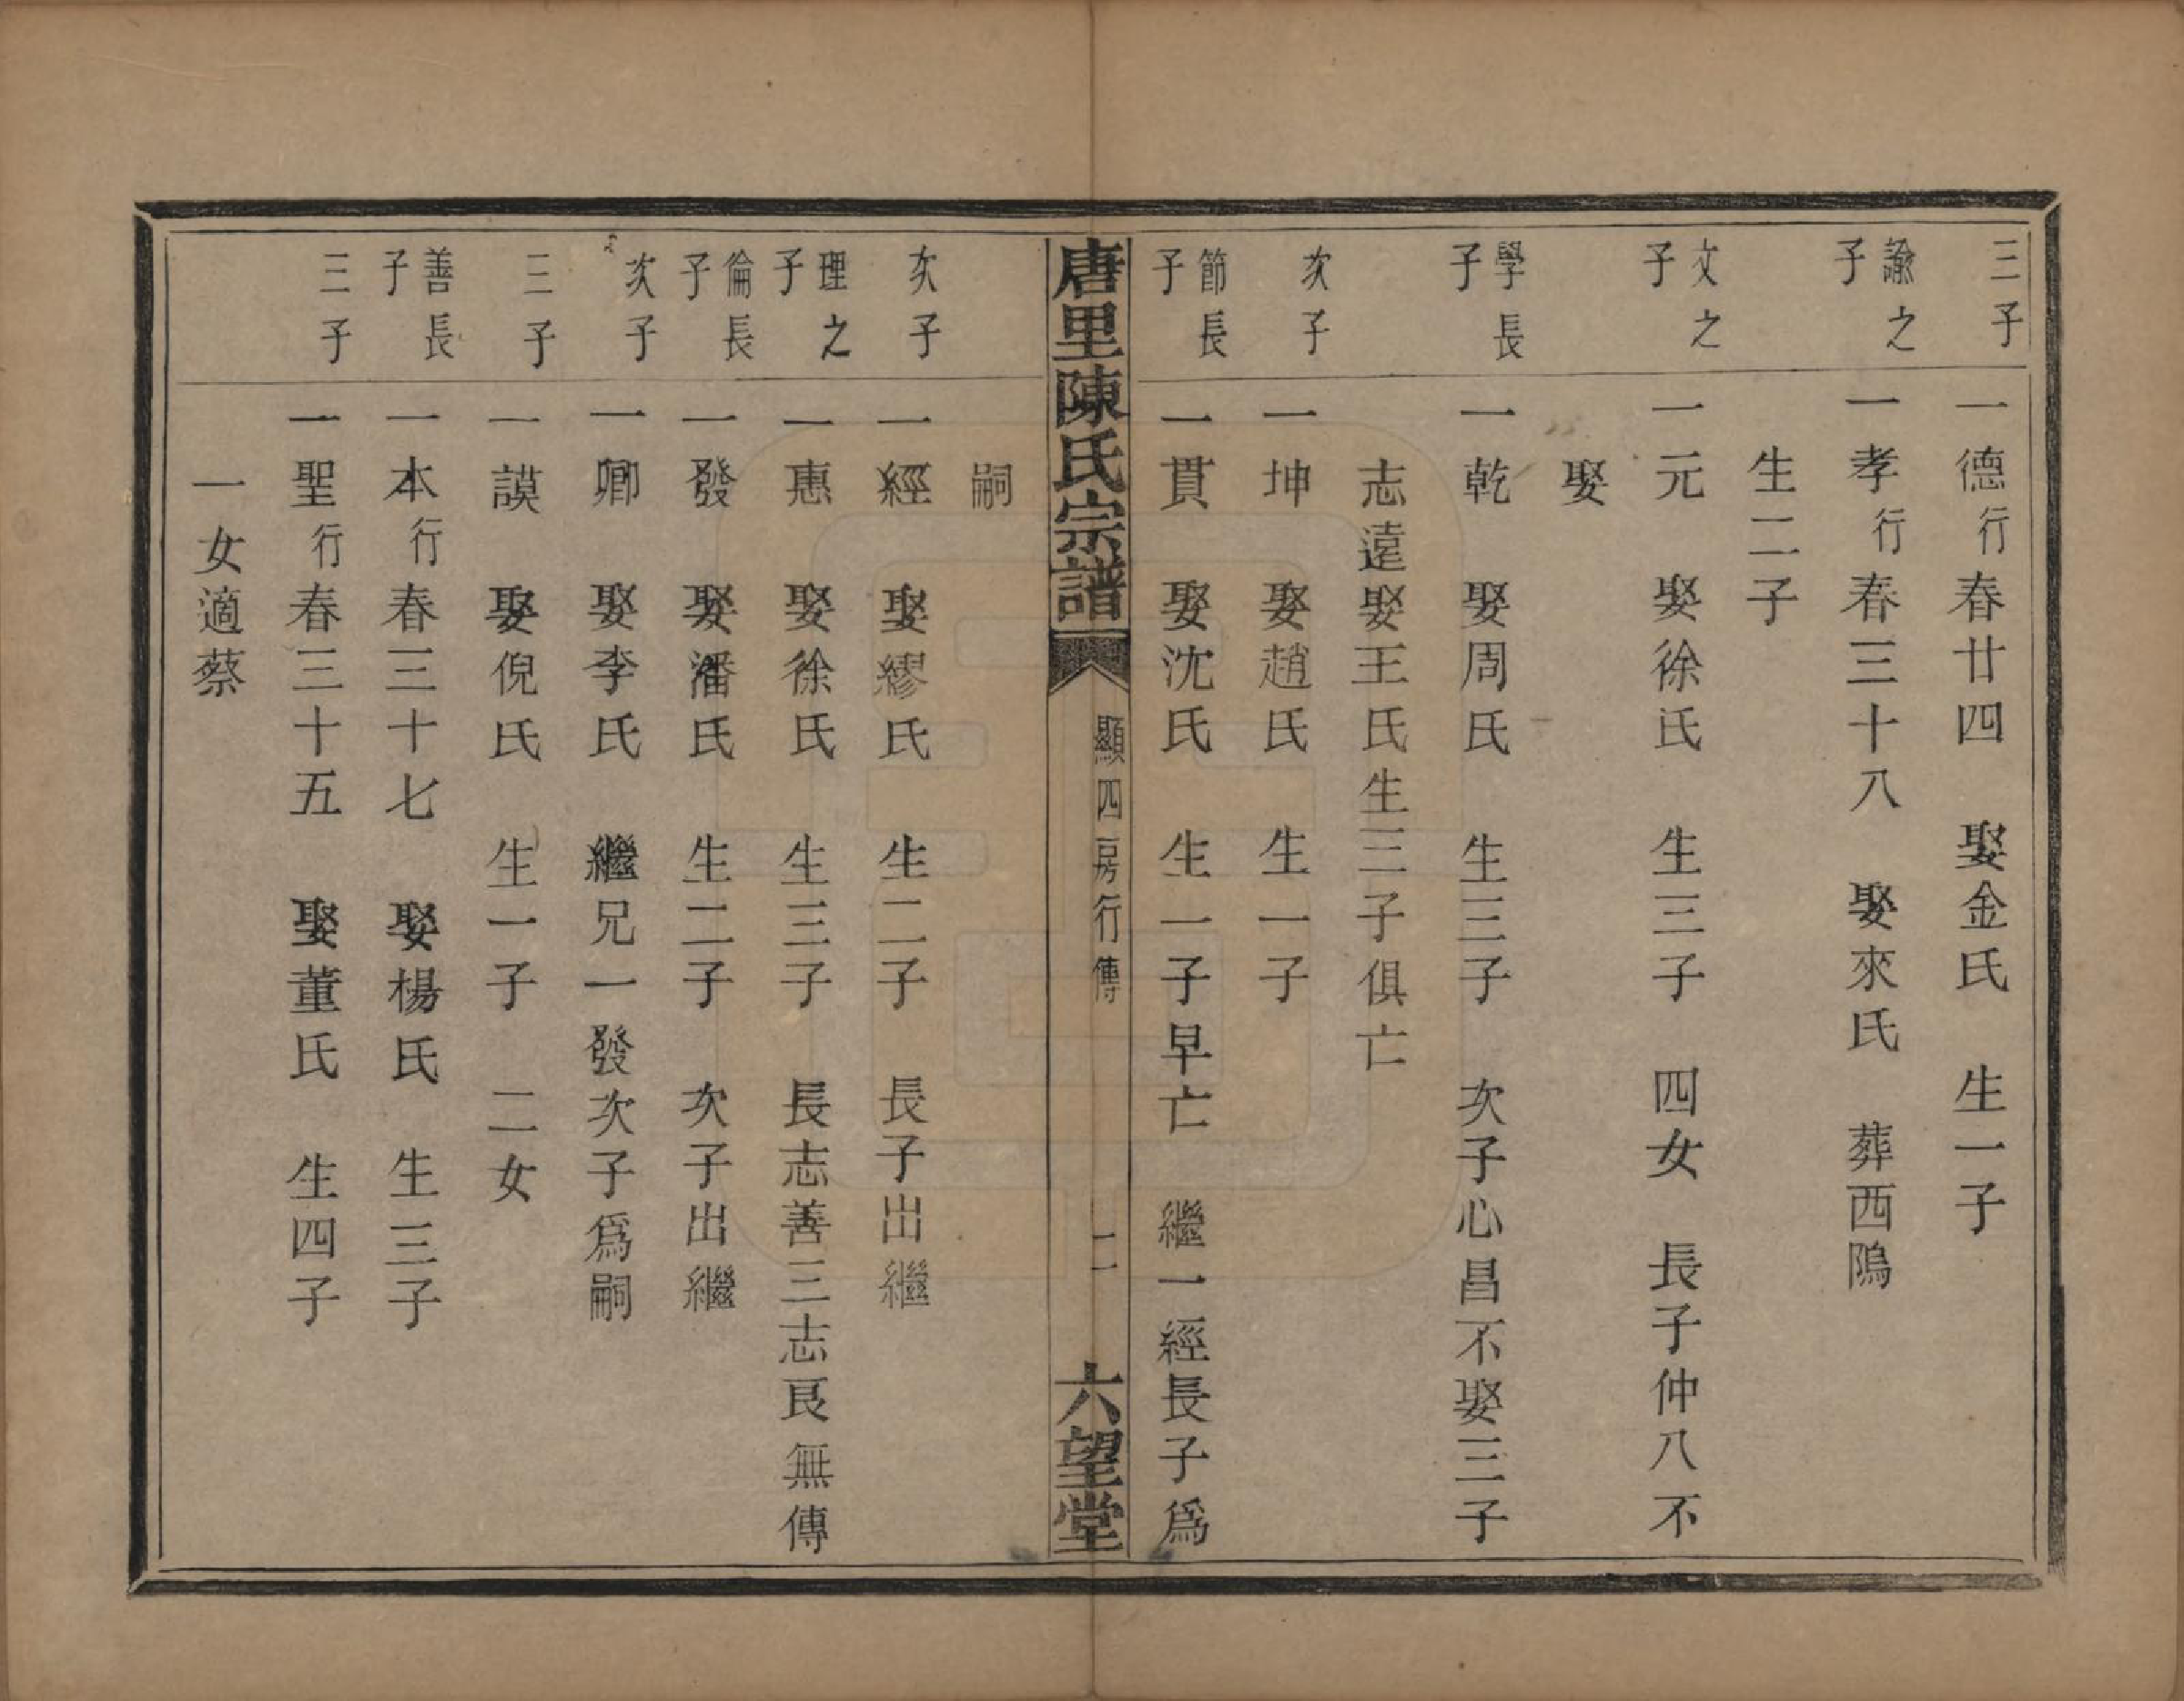 三子
一德行春廿四　娶金氏　生一子
諭之子
一孝行春三十八　娶來氏　葬西隖
生二子
文之子
一元　娶徐氏　生三子　四女　長子仲八不
娶
學長子
一乾　娶周氏　生三子　次子心昌不娶三子
志遠娶王氏生三子俱亡
次子
一坤　娶趙氏　生一子
節長子
一貫　娶沈氏　生一子早亡　繼一經長子爲
唐里陳氏宗譜　顯四房行傳　二　六望堂
嗣
次子
一經　娶繆氏　生二子　長子出繼
理之子
一惠　娶徐氏　生三子　長志善三志艮無傳
倫長子
一發　娶潘氏　生二子　次子出繼
次子
一卿　娶李氏　繼兄一發次子爲嗣
三子
一謨　娶倪氏　生一子　二女
善長子
一本行春三十七　娶楊氏　生三子
三子
一聖行春三十五　娶董氏　生四子
一女適蔡